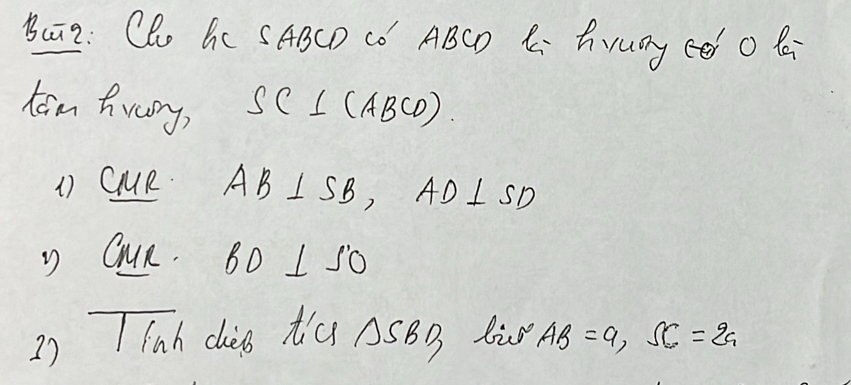 Bài 2: Cho hc SABCD có ABCD là hvuông có O là
tâm hvuông, SC ⊥ (ABCD).
1) CMR. AB ⊥ SB, AD ⊥ SD
2) CMR. BD ⊥ SO
3) Tính diện tích ΔSBD, biết AB = a, SC = 2a